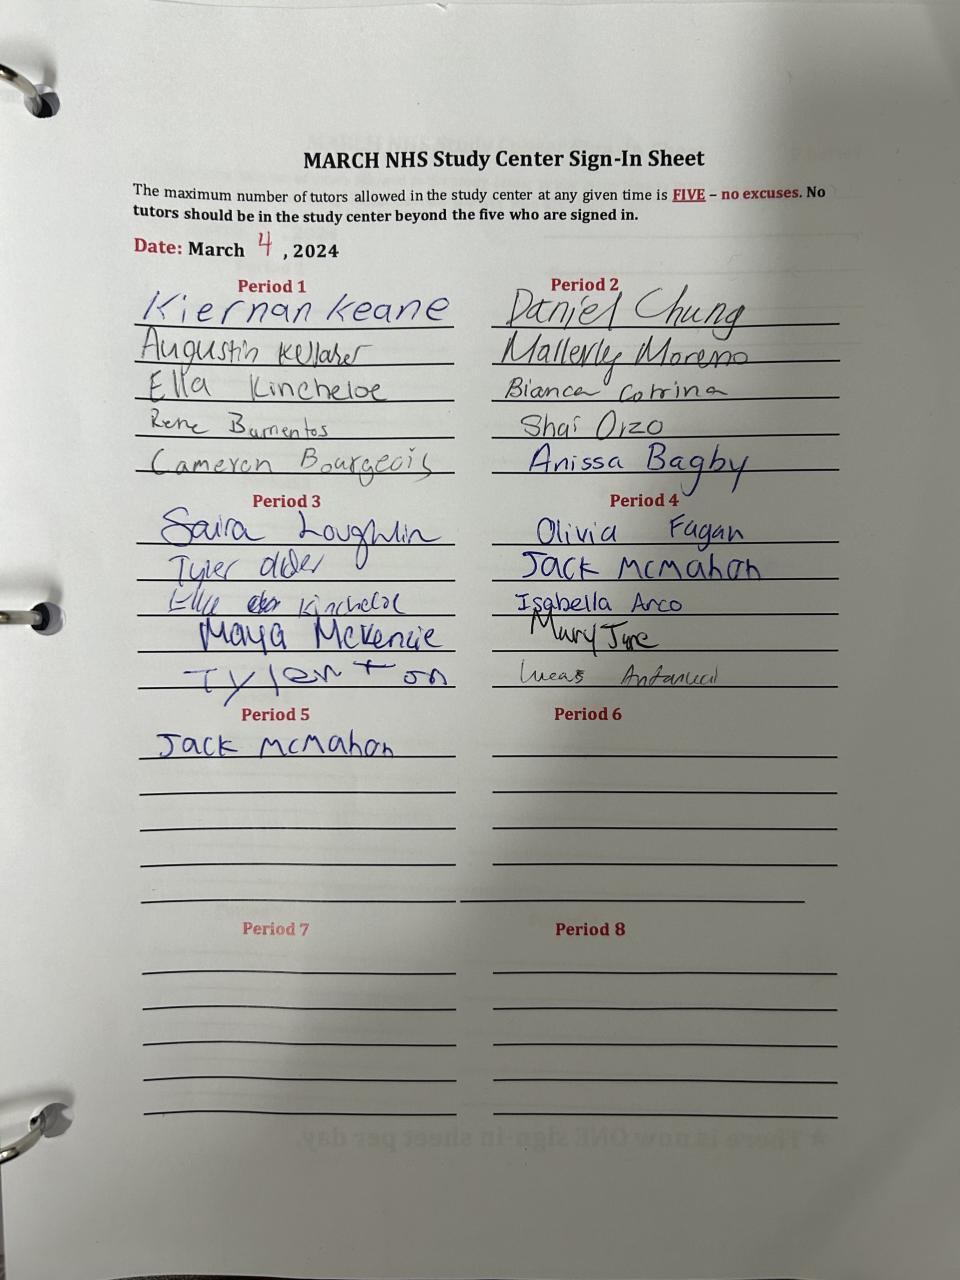 MARCH NHS Study Center Sign-In Sheet
The maximum number of tutors allowed in the study center at any given time is FIVE – no excuses. No
tutors should be in the study center beyond the five who are signed in.
Date: March 4, 2024
Period 1
Kiernan Keane
Augustin Kellaher
Ella Kincheloe
Rene Barrientos
Cameron Bourgeois
Period 2
Daniel Chung
Mallerly Moreno
Bianca Cotrina
Shai Orzo
Anissa Bagby
Period 3
Saira Loughlin
Tyler
Kincheloe
Maya McKenzie
Tylenton
Period 4
Olivia Fagan
Jack McMahon
Isabella Arco
Mary
Lucas
Period 5
Jack McMahon
Period 6
Period 7
Period 8